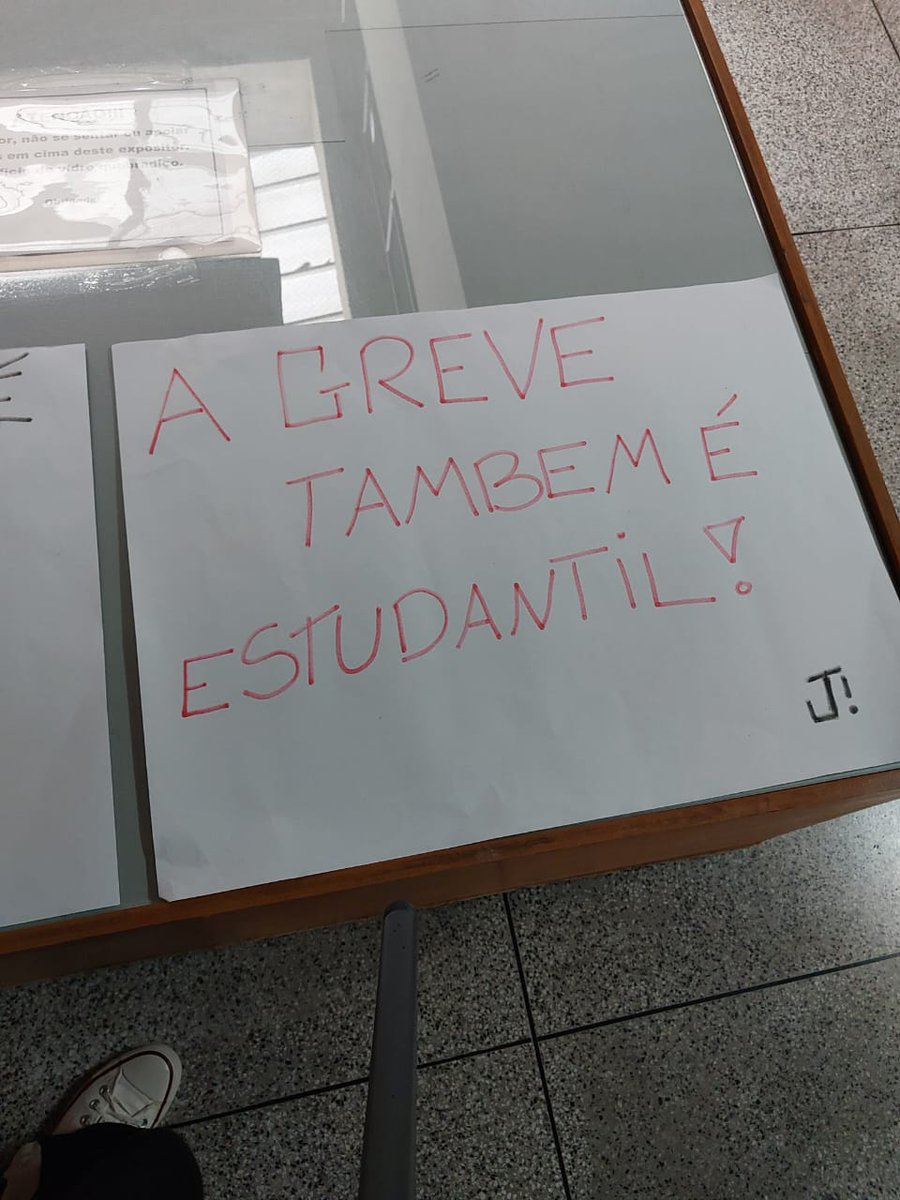 or, não se sentar ou apoiar
s em cima deste expositor.
de vidro quebradiço.
A GREVE
TAMBEM É
ESTUDANTIL!
J!